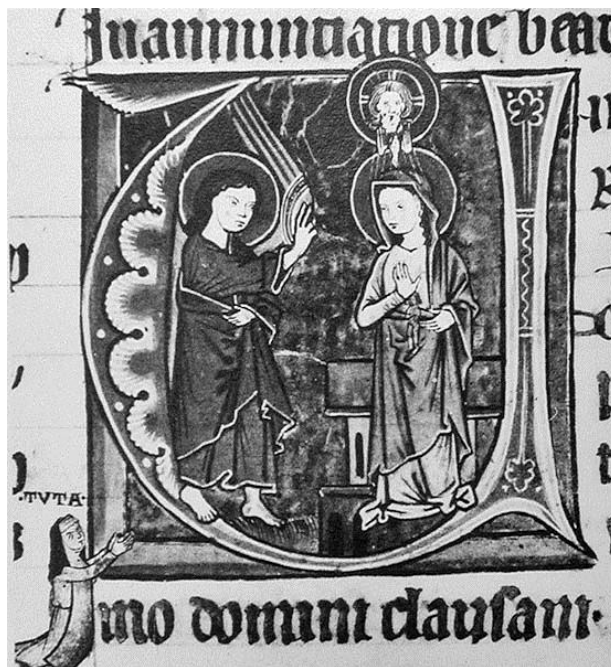 In annuntiatione beat
·TVTA·
mo domini clausam·